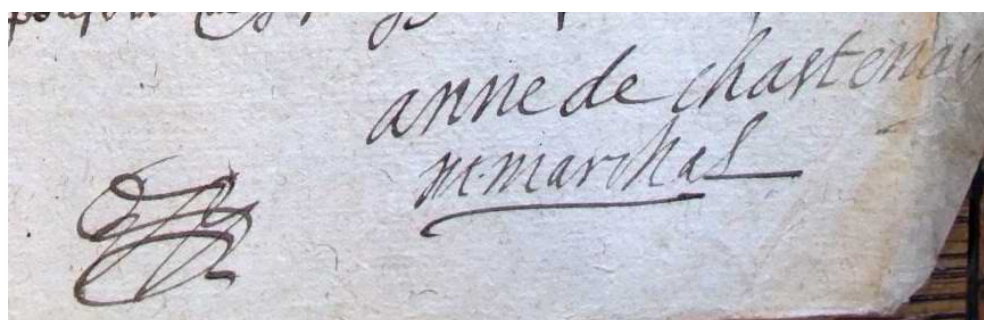 anne de chastenay
m. marchal